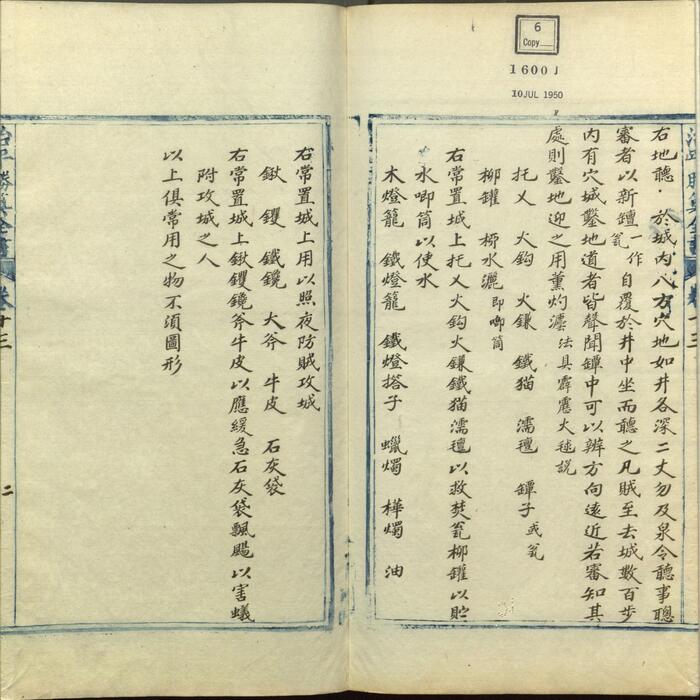 6
Copy
1600 J
10 JUL 1950
右地聽．於城內八方穴地如井各深二丈勿及泉令聽事聰
審者以新罈一作瓮自覆於井中坐而聽之凡賊至去城數百步
內有穴城鑿地道者皆聲聞罈中可以辨方向遠近若審知其
處則鑿地迎之用薰灼灋法具霹靂火毬説
托乂 火鈎 火鎌 鐵猫 濡氊 罈子或瓮
柳罐 栁水灑即唧筒
右常置城上托乂火鈎火鎌鐵猫濡氊以救焚瓮柳罐以貯
水唧筒以使水
木燈籠 鐵燈籠 鐵燈搭子 蠟燭 樺燭 油
右常置城上用以照夜防賊攻城
鍬 钁 鐵鑱 大斧 牛皮 石灰袋
右常置城上鍬钁鑱斧牛皮以應緩急石灰袋飄颺以害蟻
附攻城之人
以上俱常用之物不須圖形
二